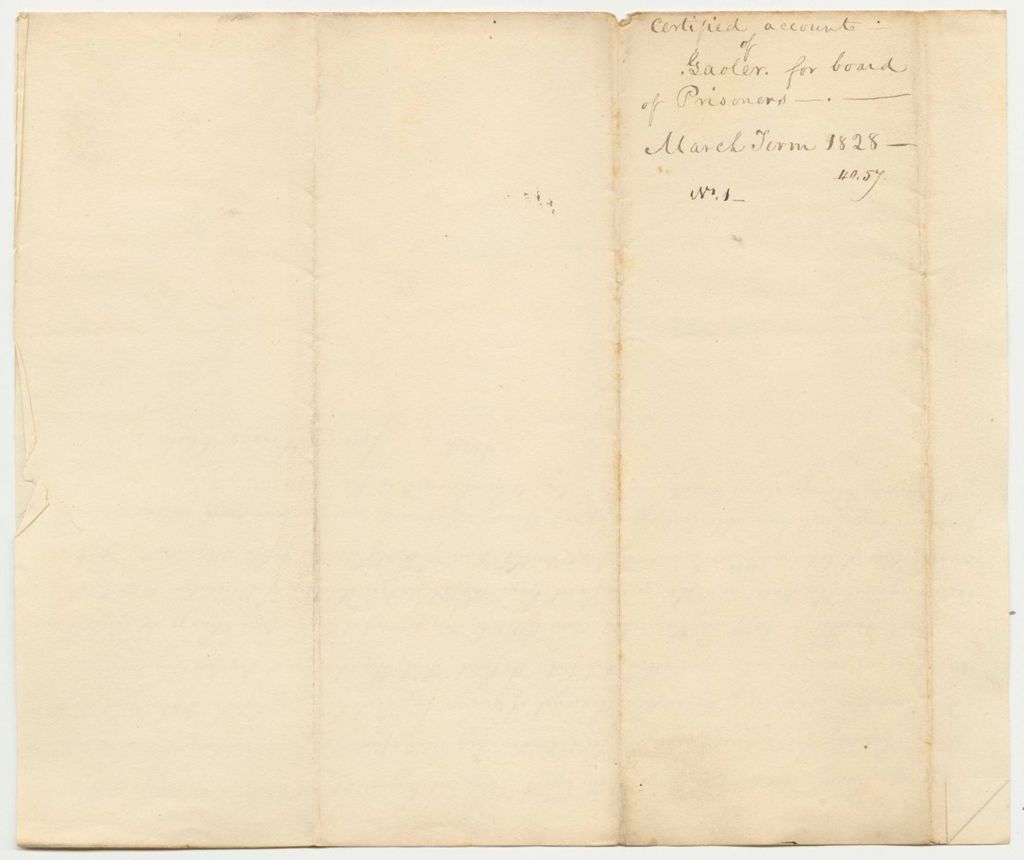 Certified accounts
of
Gaoler. for board
of Prisoners —. —
March Term 1828 —
40.57.
No. 1 —